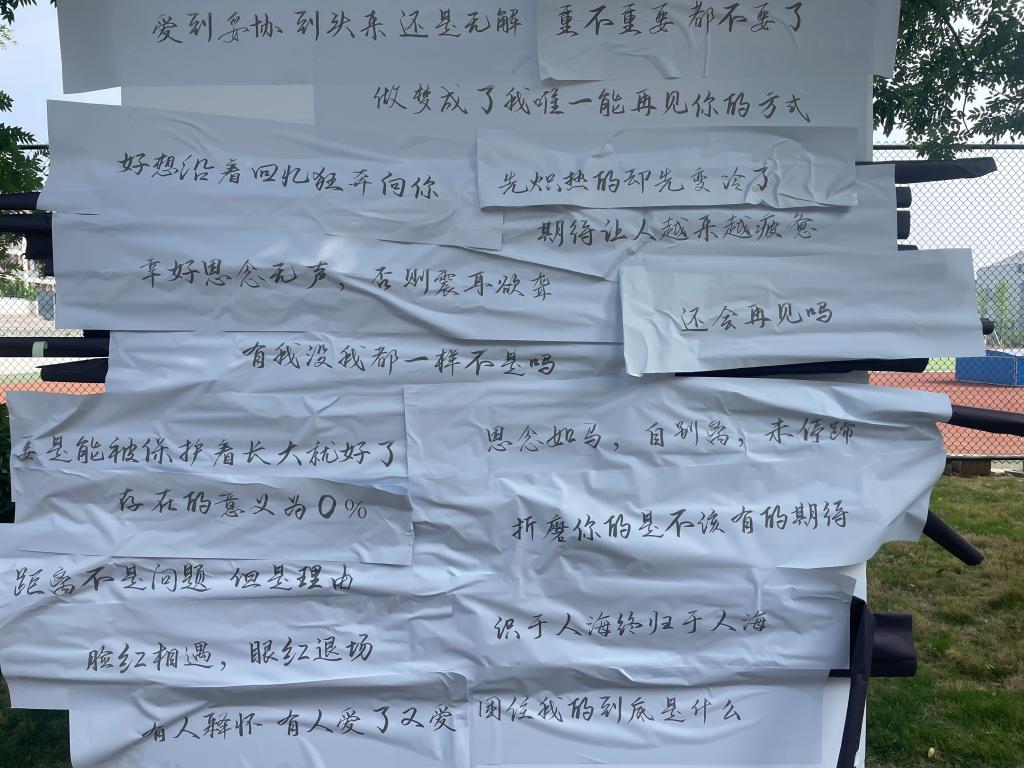 爱到妥协 到头来 还是无解
重不重要 都不要了
做梦成了我唯一能再见你的方式
好想沿着回忆狂奔向你
先炽热的却先变冷了
期待让人越来越疲惫
幸好思念无声，否则震耳欲聋
还会再见吗
有我没我都一样不是吗
要是能被保护着长大就好了
思念如马，自别离，未停蹄
存在的意义为0%
折磨你的是不该有的期待
距离不是问题 但是理由
识于人海终归于人海
脸红相遇，眼红退场
有人释怀 有人爱了又爱
困住我的到底是什么